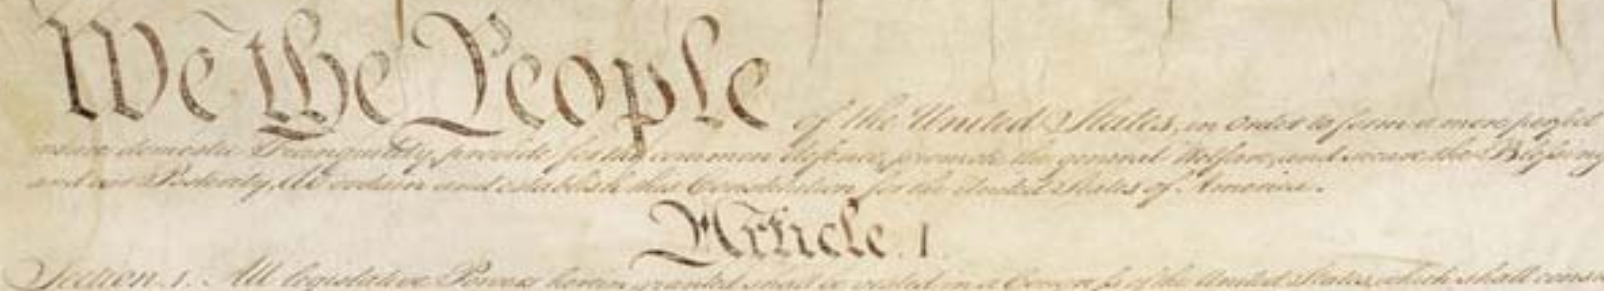 We the People of the United States, in Order to form a more perfect
insure domestic Tranquility, provide for the common defence, promote the general Welfare, and secure the Blessing
and our Posterity, do ordain and establish this Constitution for the United States of America.
Article. I.
Section. 1. All legislative Powers herein granted shall be vested in a Congress of the United States, which shall consis